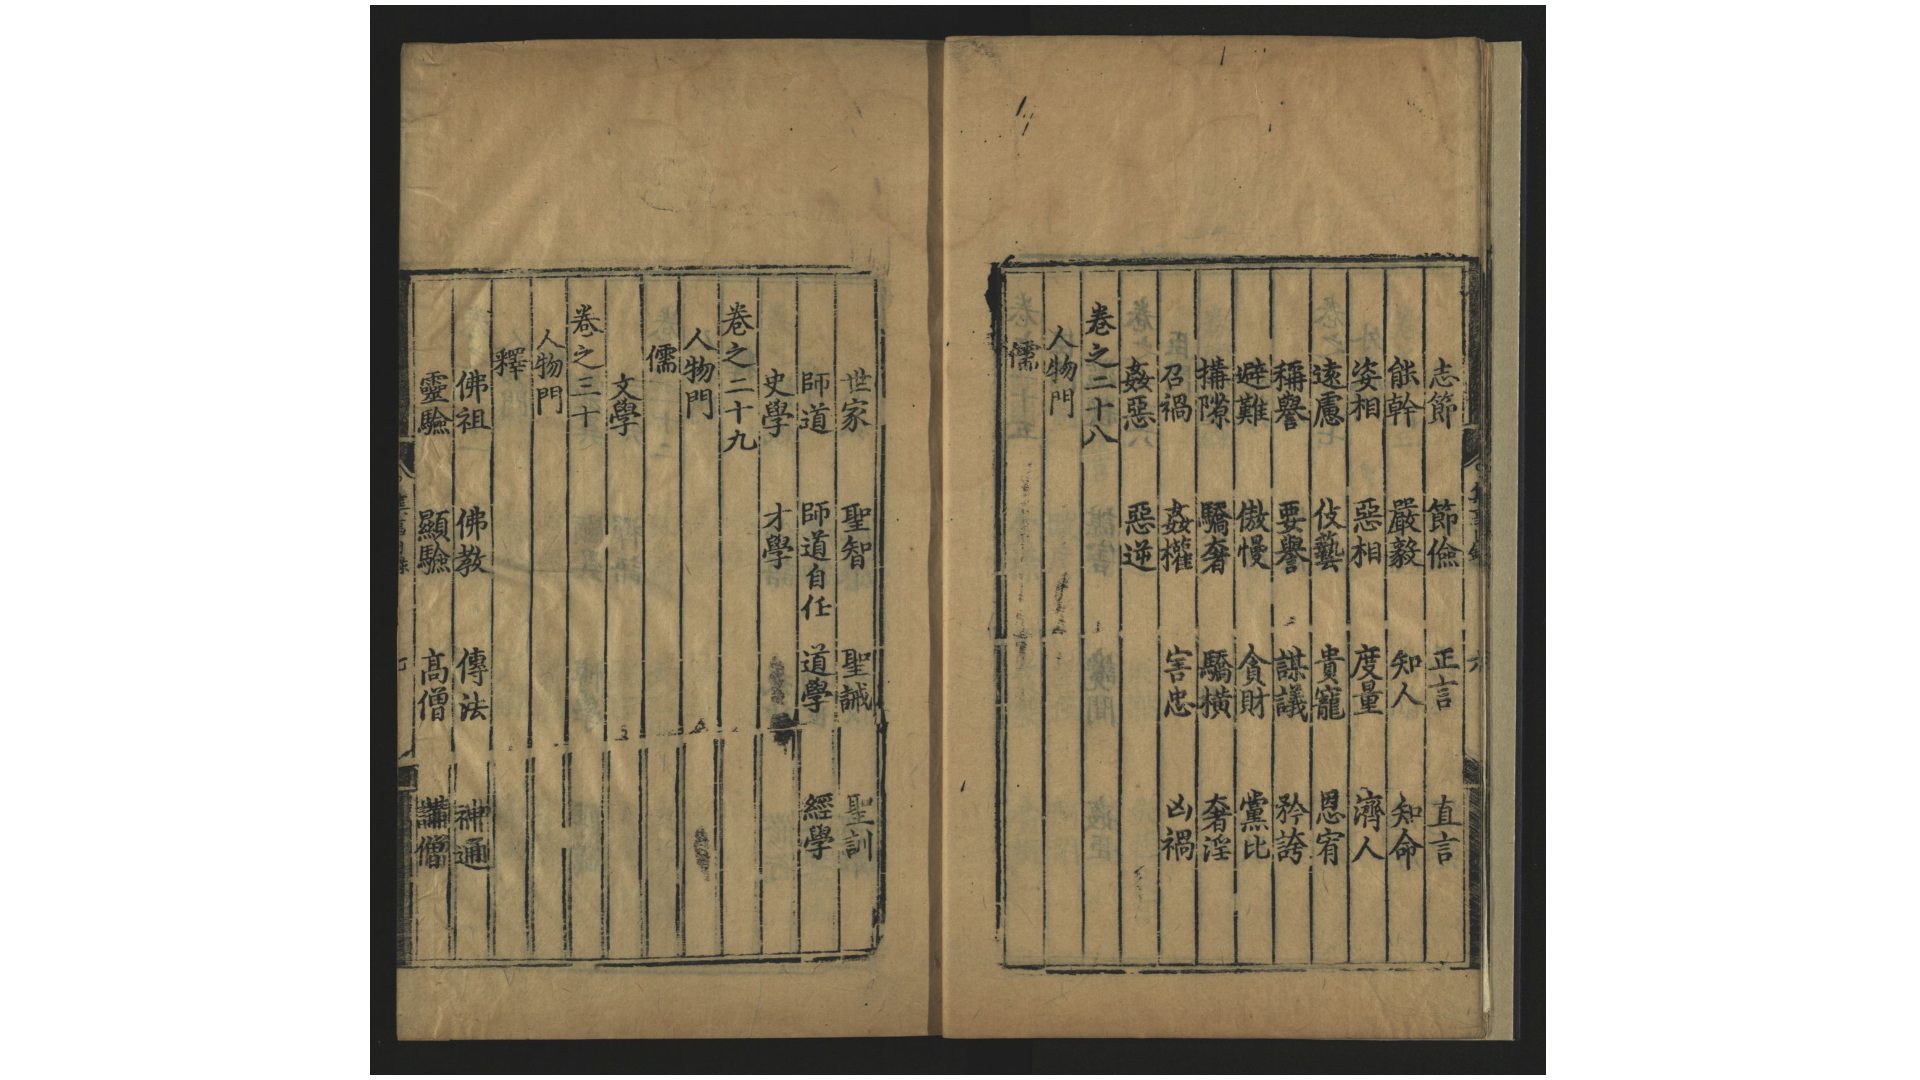 志節 節儉 正言 直言
能幹 嚴毅 知人 知命
姿相 惡相 度量 濟人
遠慮 伎藝 貴寵 恩宥
稱譽 要譽 謀議 矜誇
避難 傲慢 貪財 黨比
搆隙 驕奢 驕橫 奢淫
召禍 姦權 害忠 凶禍
姦惡 惡逆
卷之二十八
人物門
儒
世家 聖智 聖誠 聖訓
師道 師道自任 道學 經學
史學 才學
卷之二十九
人物門
儒
文學
卷之三十
人物門
釋
佛祖 佛教 傳法 神通
靈驗 顯驗 高僧 講僧